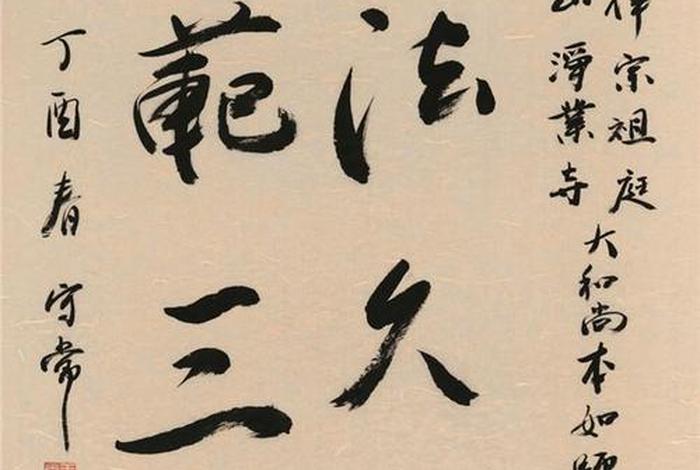 律宗祖庭
山淨業寺
大和尚本如
法久
範三
丁酉春守常